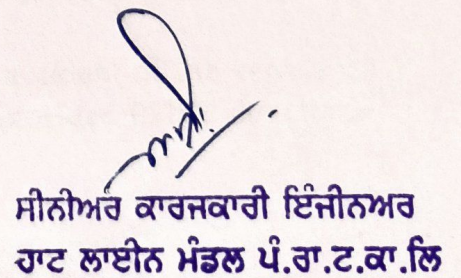 ਸੀਨੀਅਰ ਕਾਰਜਕਾਰੀ ਇੰਜੀਨਅਰ
ਹਾਟ ਲਾਈਨ ਮੰਡਲ ਪੰ.ਰਾ.ਟ.ਕਾ.ਲਿ